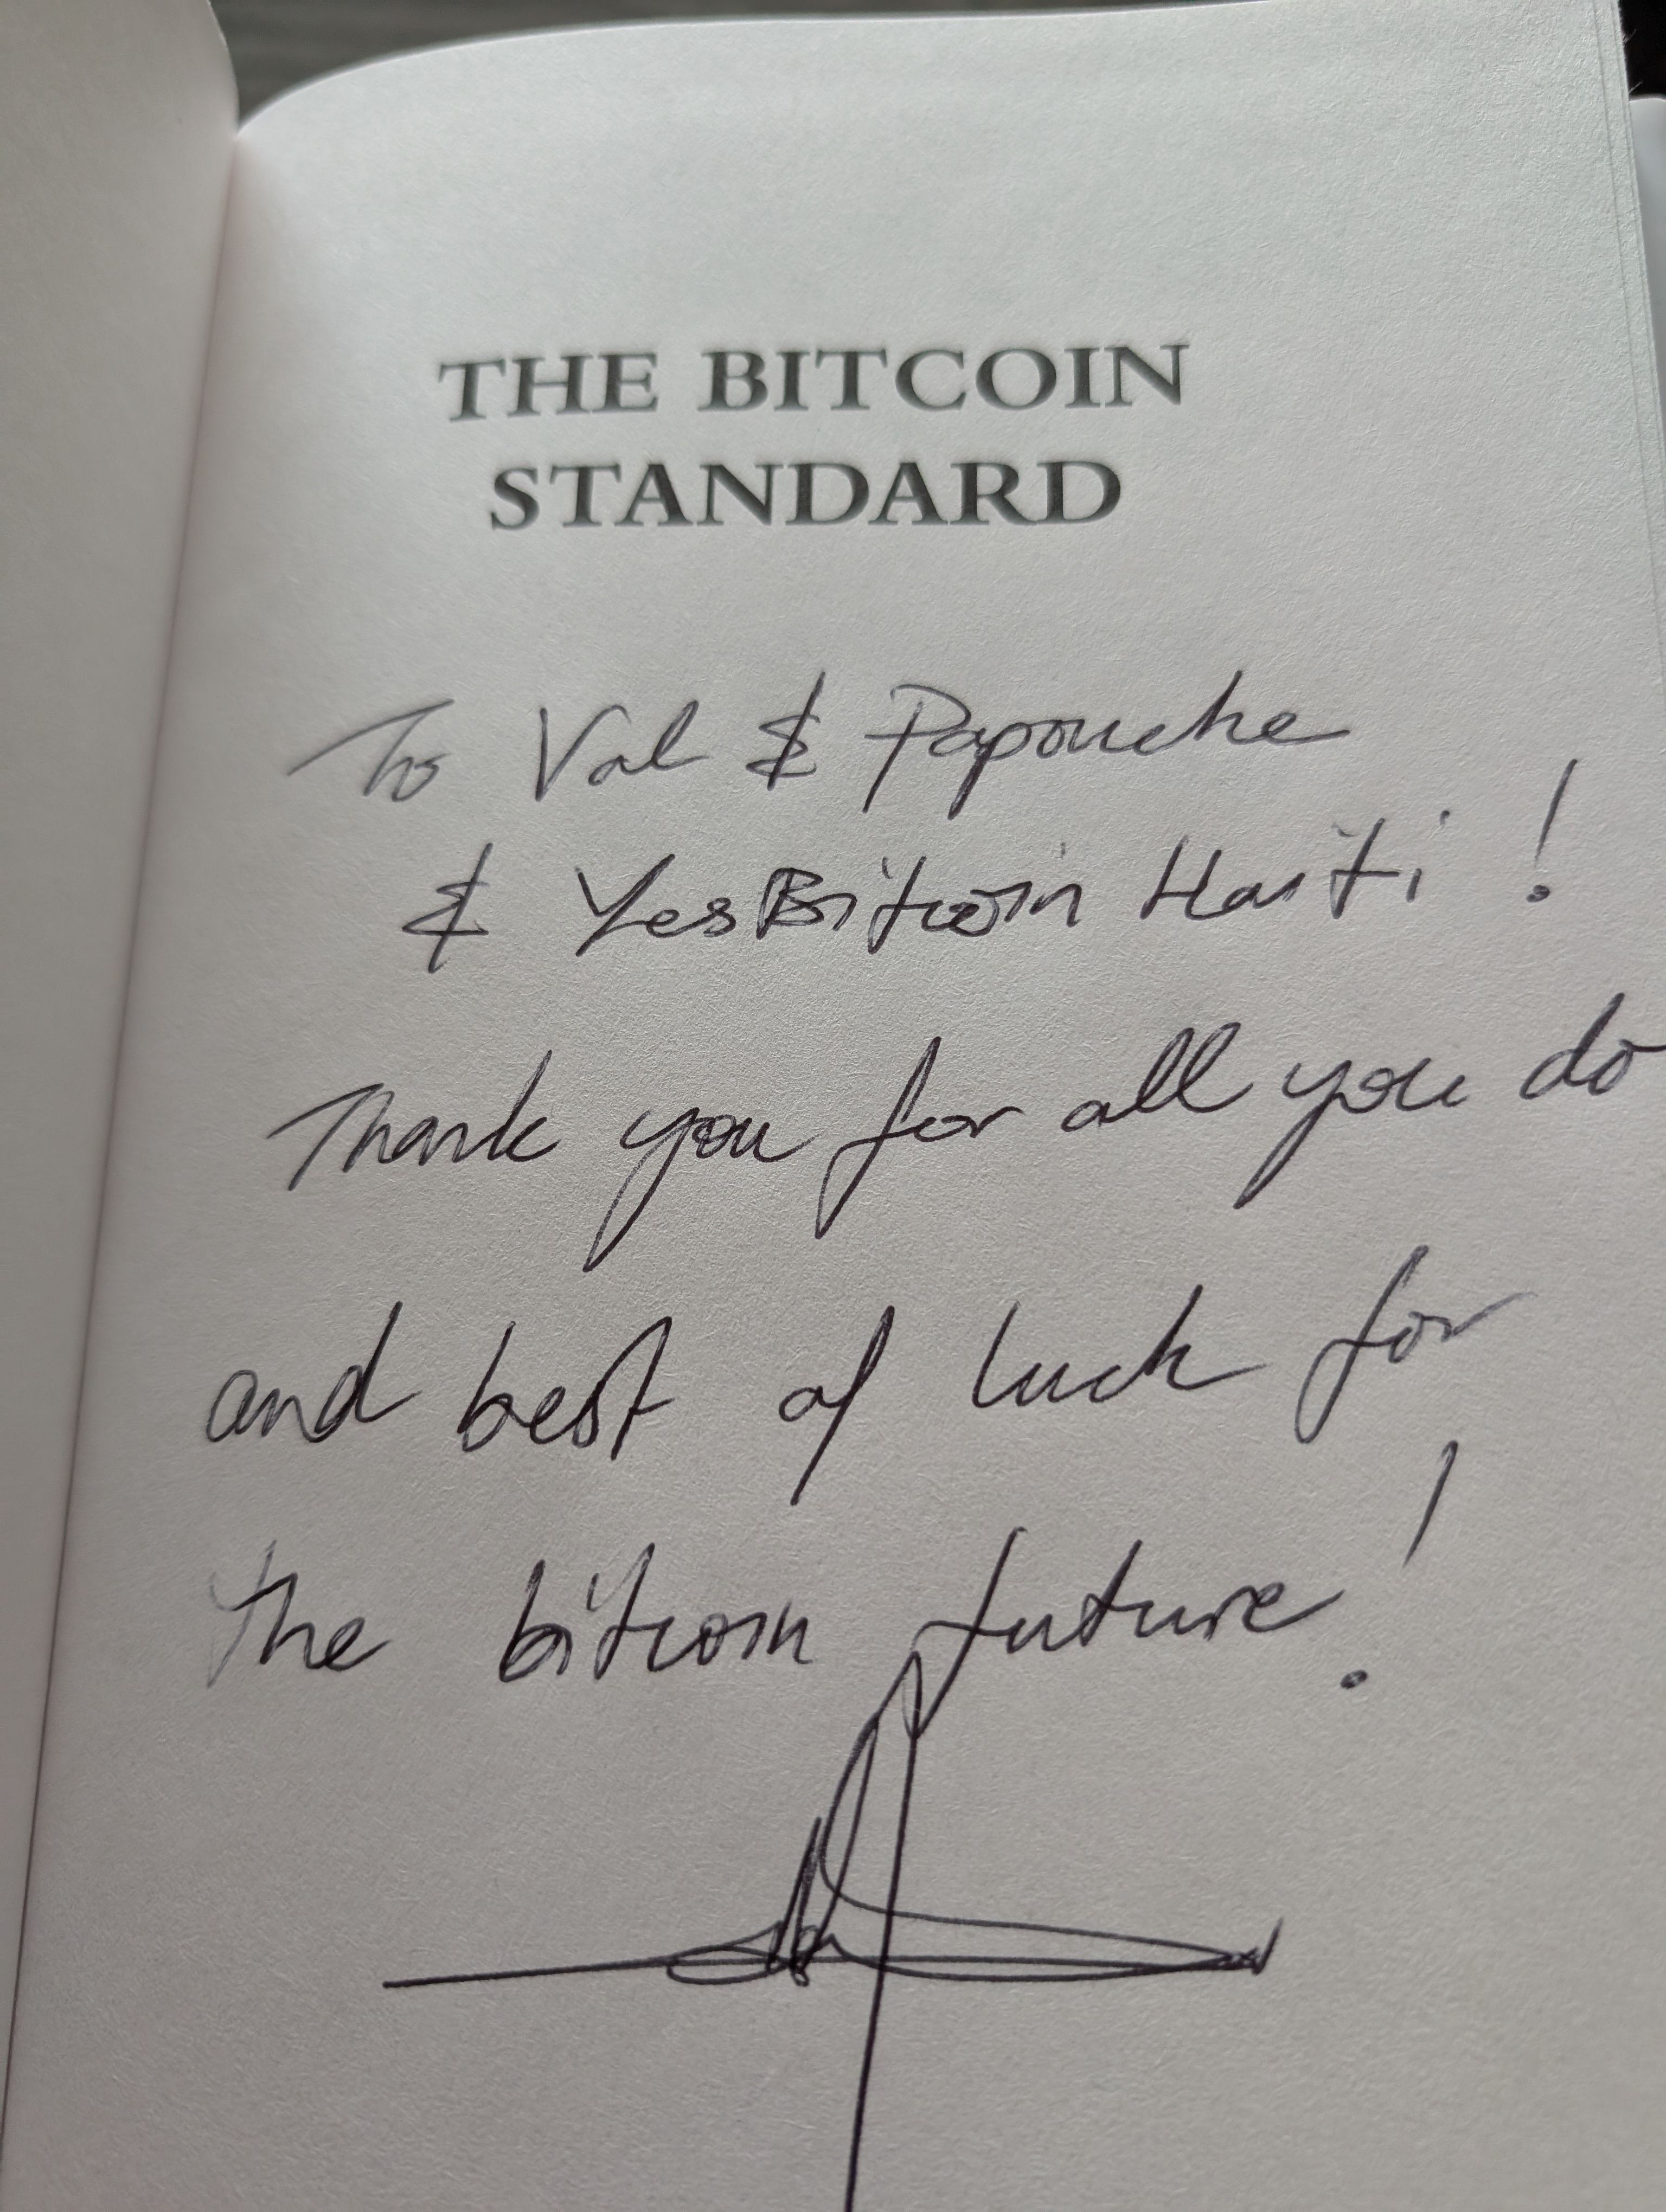 THE BITCOIN
STANDARD
To Val & Papouche
& YesBitcoin Haiti !
Thank you for all you do
and best of luck for
the bitcoin future!